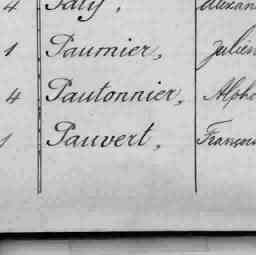 4 Paty,
1 Paumier, Julien
4 Pautonnier, Alpho
1 Pauvert, François